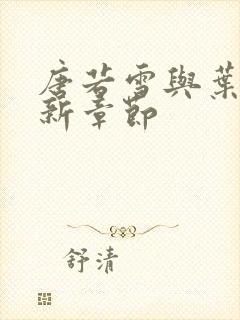 唐若雪與葉
新章節
舒清